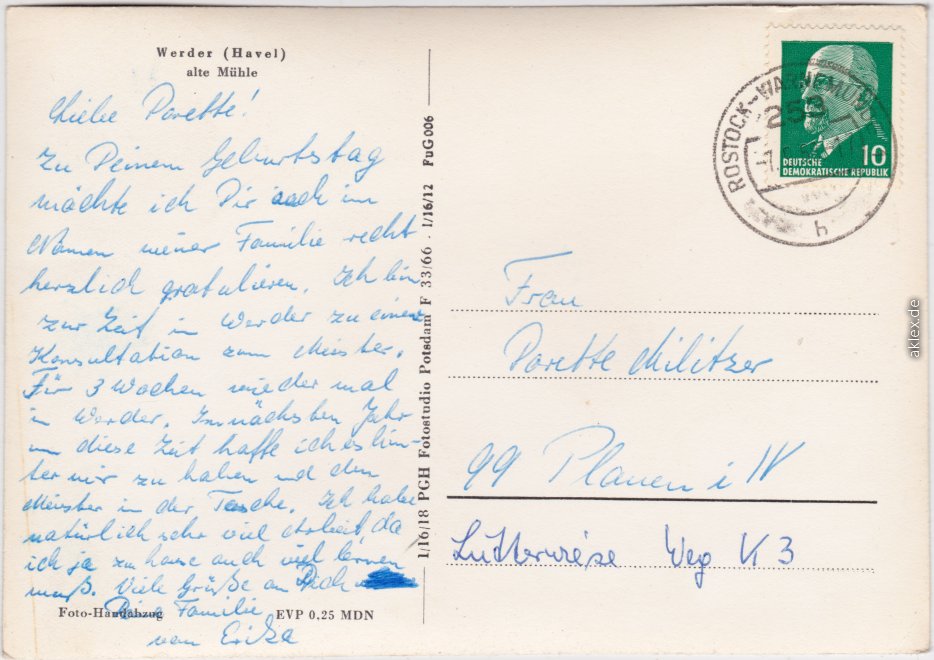 Werder (Havel)
alte Mühle
Liebe Dorette!
Zu Deinem Geburtstag
möchte ich Dir auch im
Namen meiner Familie recht
herzlich gratulieren. Ich bin
zur Zeit in Werder zu einer
Konsultation zum Meister.
Für 3 Wochen wieder mal
in Werder. Im nächsten Jahr
um diese Zeit hoffe ich es hin-
ter mir zu haben und den
Meister in der Tasche. Ich habe
natürlich sehr viel Arbeit, da
ich ja zu hause auch viel lernen
muß. Viele Grüße an Dich
Deine Familie
von Erika
Foto-Handabzug
EVP 0,25 MDN
1/16/18 PGH Fotostudio Potsdam F 33/66 · 1/16/12 FuG 006
ROSTOCK-WARNEMÜNDE
253
h
DEUTSCHE
DEMOKRATISCHE REPUBLIK
10
Frau
Dorette Militzer
99 Plauen i V
Lutterwiese Weg K 3
aklex.de